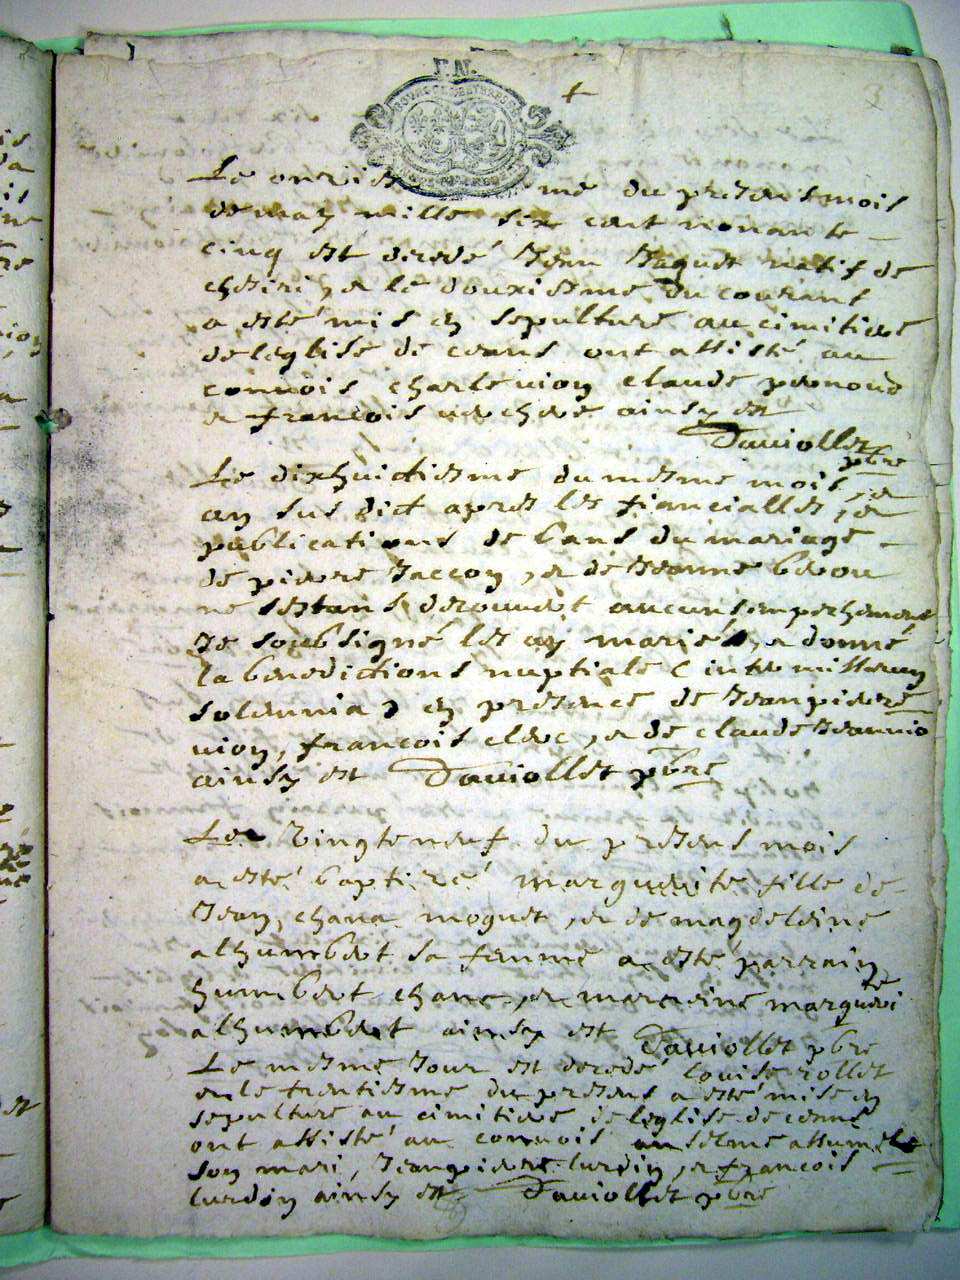 F. N.
3
Le onziesme du presens mois
de may mille six cent nonante
cinq est decedé Jean Jaquet natif de
et le douxiesme du courant
a esté mis en sepulture au cimitiere
de leglise de ceans ont assisté au
connois charle vion claude pernoud
et francois ainsy est
Daviollet pbre
Le dixhuictiesme du mesme mois, et
an sus dict apres les fiancialles, et
publications de bans du mariage
de pierre Jaccon, et de Jeanne
ne sestans decouvert aucuns empechement
Je soubsigné les ay mariés, et donné
la benedictions nuptiale (intermissa
solemnia) en presence de Jeanpierre
vion, francois clerc, et de claude Jeannio
ainsy est Daviollet pbre
Le vingtneuf du presens mois
a esté baptizé marguerite fille de
Jean, chana moguet, et de magdeleine
alhumbert sa femme a esté parrain
humbert chane, et marreine marguerite
alhumbert ainsy est Daviollet pbre
Le mesme jour est decedé Louise riollet
et le trentiesme du presens a esté mise en
sepulture au cimitiere de leglise de ceans
ont assisté au connois anselme
son mari, Jeanpierre Lurdin, et francois
Lurdin ainsy est Daviollet pbre